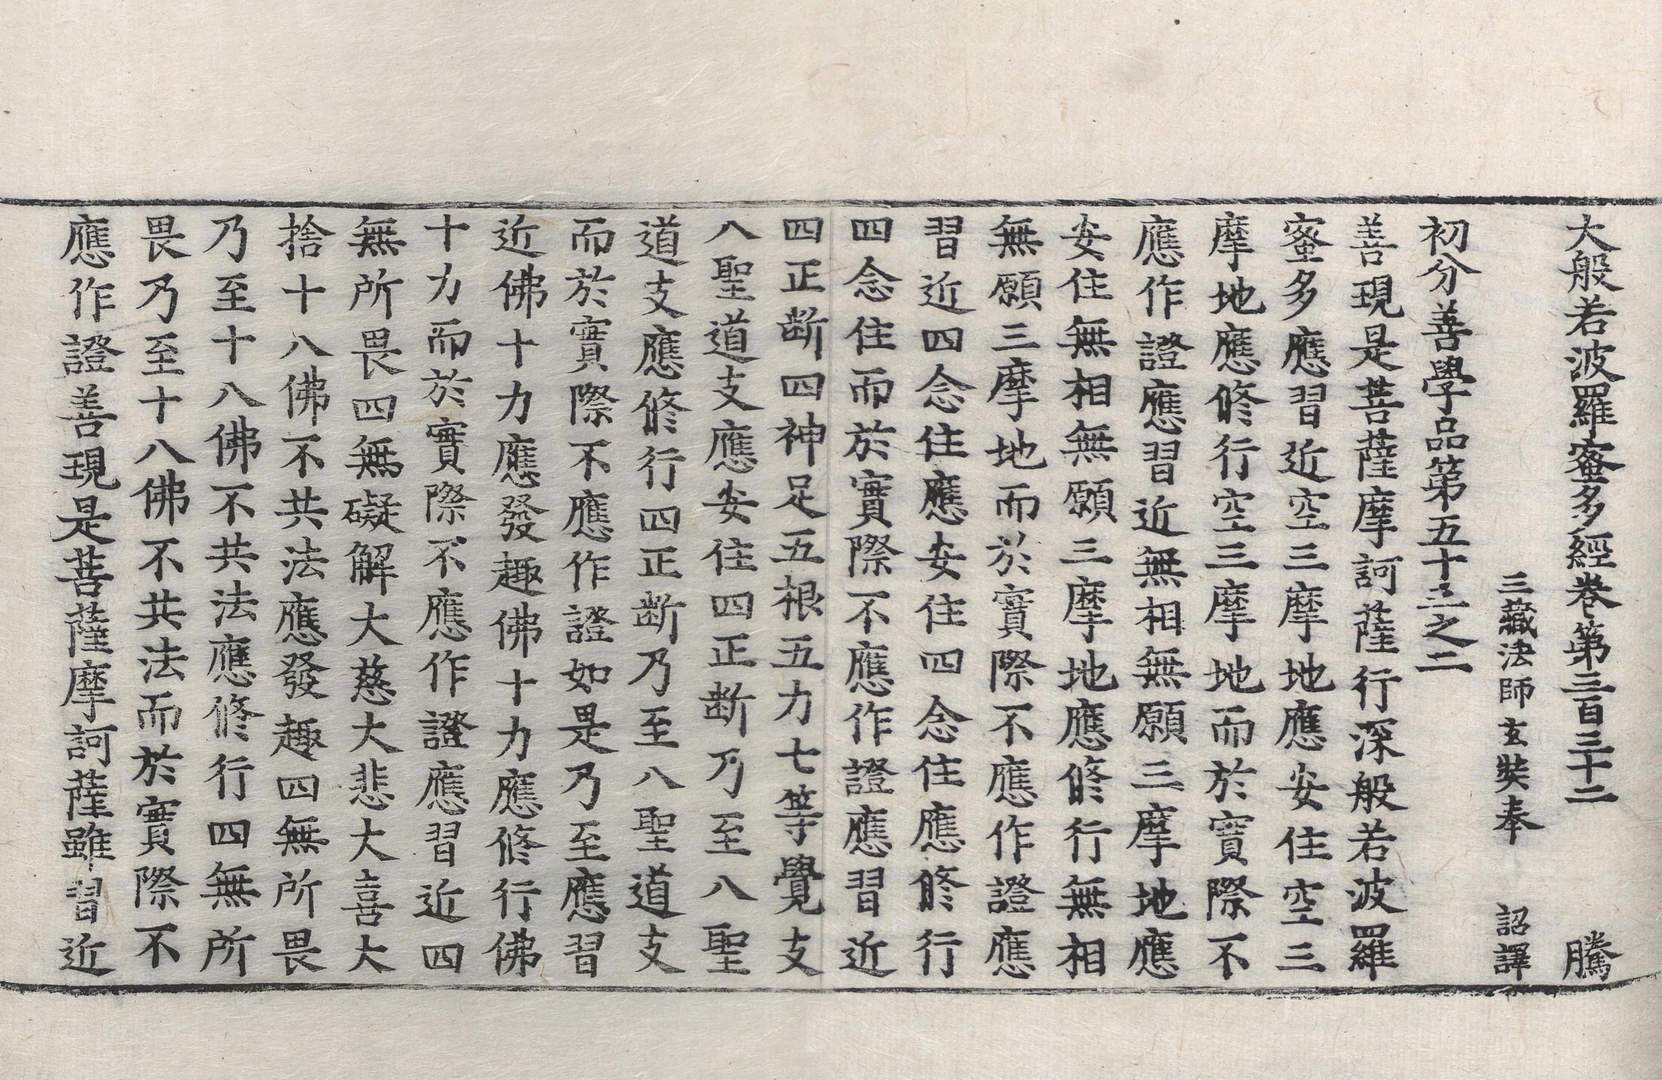 大般若波羅蜜多經卷第三百三十二 騰
三藏法師玄奘奉 詔譯
初分善學品第五十三之二
善現是菩薩摩訶薩行深般若波羅
蜜多應習近空三摩地應安住空三
摩地應修行空三摩地而於實際不
應作證應習近無相無願三摩地應
安住無相無願三摩地應修行無相
無願三摩地而於實際不應作證應
習近四念住應安住四念住應修行
四念住而於實際不應作證應習近
四正断四神足五根五力七等覺支
八聖道支應安住四正断乃至八聖
道支應修行四正断乃至八聖道支
而於實際不應作證如是乃至應習
近佛十力應發趣佛十力應修行佛
十力而於實際不應作證應習近四
無所畏四無礙解大慈大悲大喜大
捨十八佛不共法應發趣四無所畏
乃至十八佛不共法應修行四無所
畏乃至十八佛不共法而於實際不
應作證善現是菩薩摩訶薩雖習近